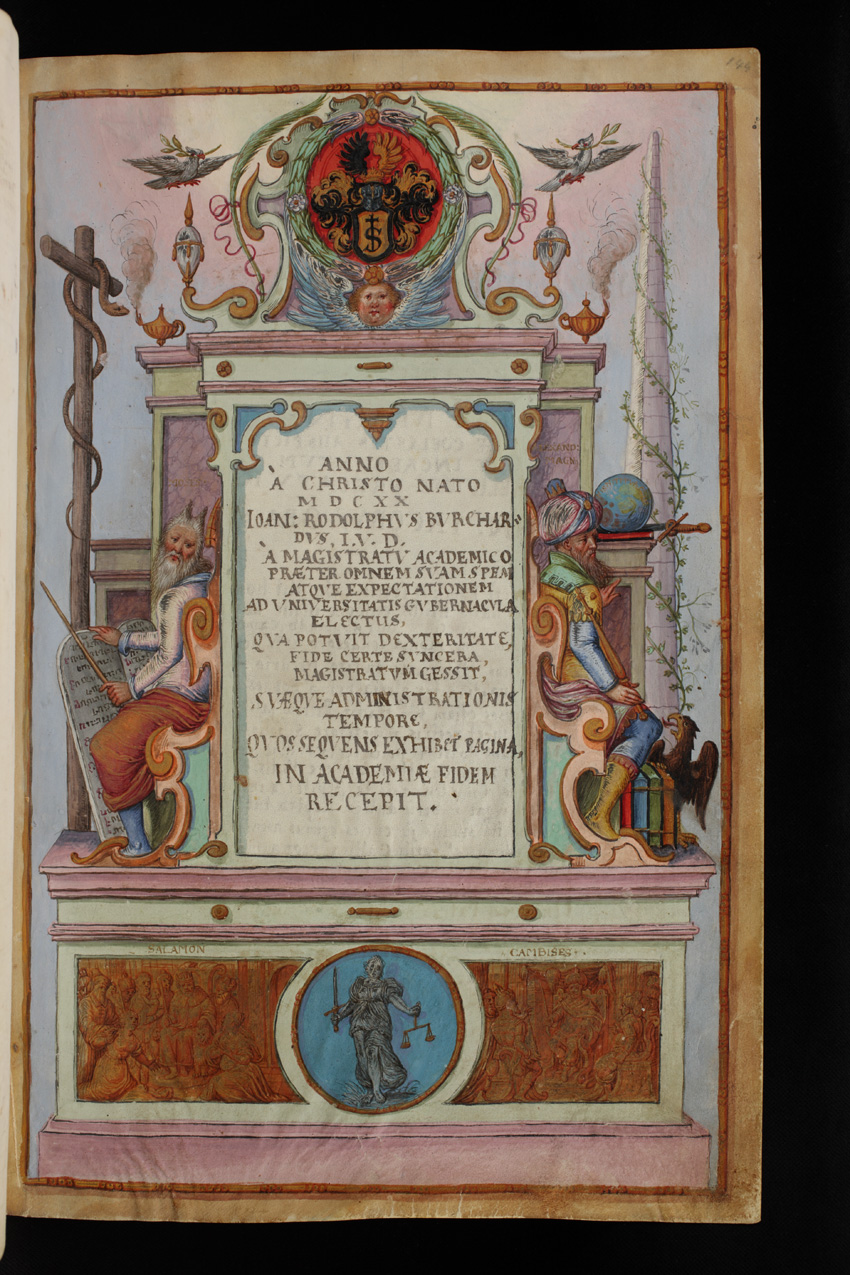 ANNO
A CHRISTO NATO
MDCXX
IOAN: RODOLPHVS BVRCHAR-
DVS, I.V.D.
A MAGISTRATV ACADEMICO
PRÆTER OMNEM SVAM SPEM
ATQVE EXPECTATIONEM
AD VNIVERSITATIS GVBERNACVLA
ELECTUS,
QVA POTVIT DEXTERITATE,
FIDE CERTE SYNCERA,
MAGISTRATVM GESSIT,
SVÆQVE ADMINISTRATIONIS
TEMPORE,
QVOS SEQVENS EXHIBET PAGINA,
IN ACADEMIÆ FIDEM
RECEPIT.
SALAMON
CAMBISES